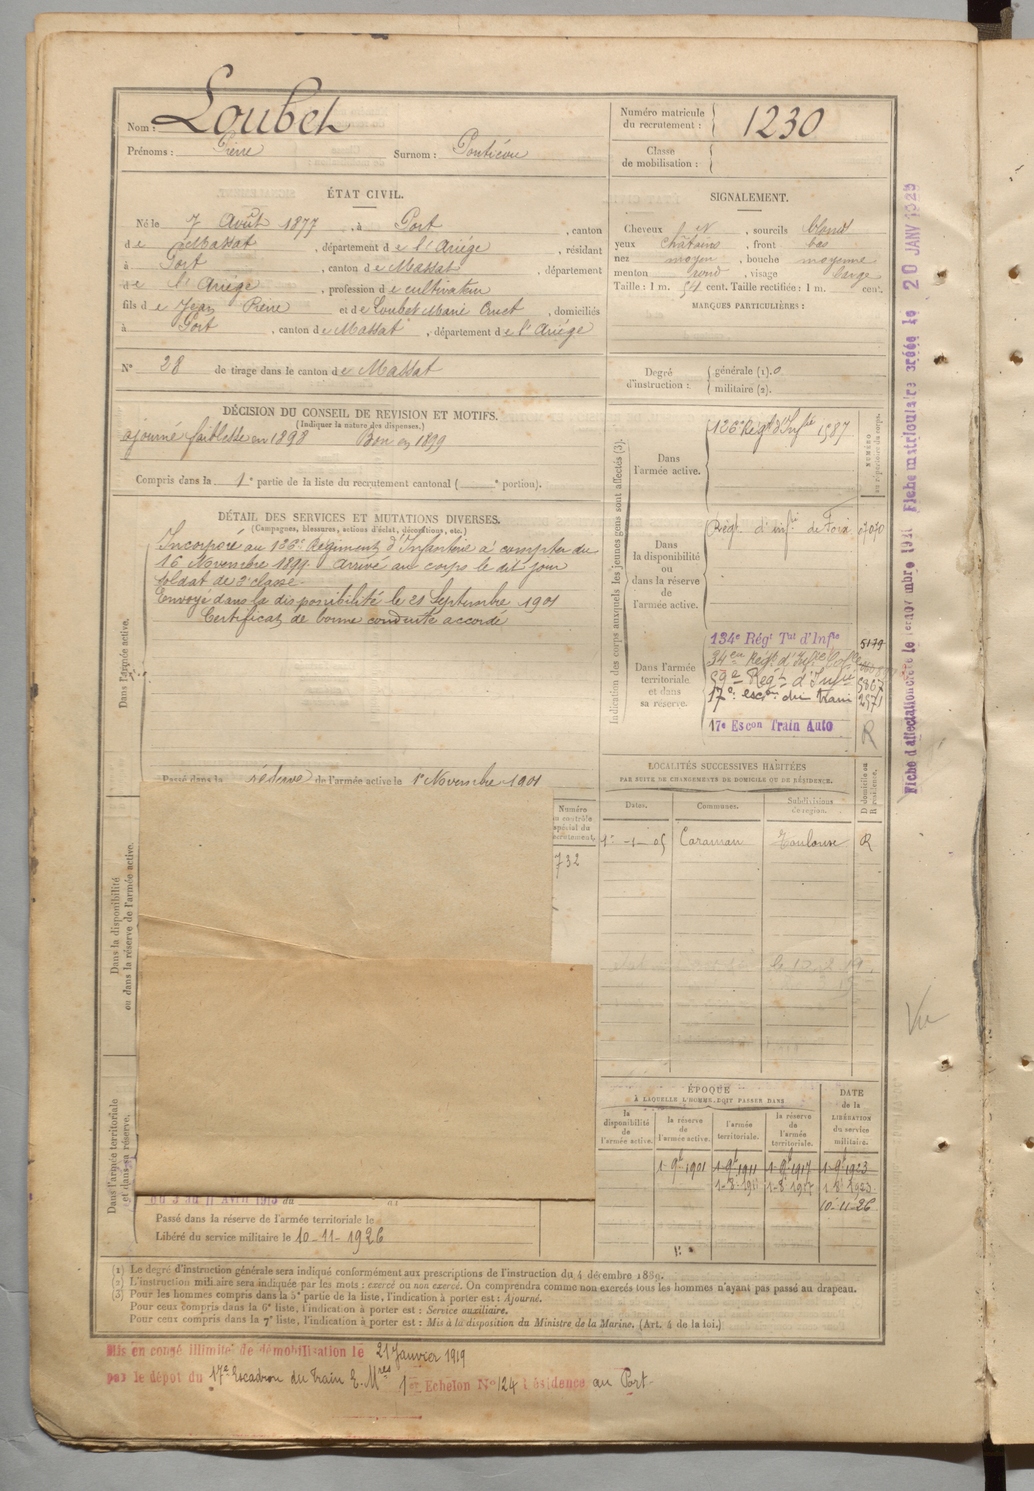 Nom : Loubet
Prénoms : Pierre Surnom : Pouticou
Numéro matricule
du recrutement : 1230
Classe
de mobilisation :
ÉTAT CIVIL.
Né le 7 Août 1877, à Port, canton
de Massat, département de l'Ariége, résidant
à Port, canton de Massat, département
de l'Ariége, profession de cultivateur
fils de Jean Pierre et de Loubet Marie, domiciliés
à Port, canton de Massat, département de l'Ariége
SIGNALEMENT.
Cheveux et, sourcils blond
yeux châtains, front bas
nez moyen, bouche moyenne
menton rond, visage large
Taille : 1 m. 54 cent. Taille rectifiée : 1 m. cent.
MARQUES PARTICULIÈRES :
N° 28 de tirage dans le canton de Massat
Degré
d'instruction :
générale (1). 0
militaire (2).
DÉCISION DU CONSEIL DE REVISION ET MOTIFS.
(Indiquer la nature des dispenses.)
ajourné faiblesse en 1898 Bon en 1899
Compris dans la 1e partie de la liste du recrutement cantonal ( e portion).
DÉTAIL DES SERVICES ET MUTATIONS DIVERSES.
(Campagnes, blessures, actions d'éclat, décorations, etc.)
Incorporé au 126e Régiment d'Infanterie à compter du
16 Novembre 1899. Arrivé au corps le dit jour
soldat de 2e classe.
Envoyé dans la disponibilité le 21 Septembre 1901
Certificat de bonne conduite accordé
Passé dans la réserve de l'armée active le 1er Novembre 1901
Dans l'armée active.
Dans la disponibilité
ou dans la réserve de l'armée active.
Dans l'armée territoriale
et dans sa réserve.
Indication des corps auxquels les jeunes gens sont affectés (3).
NUMÉRO
au répertoire du corps.
Dans
l'armée active.
126e Régt d'Infie 1587
Dans
la disponibilité
ou
dans la réserve
de
l'armée active.
Régt d'Infie de Foix
Dans l'armée
territoriale
et dans
sa réserve.
134e Régt Tal d'Infie 5179
34e Régt d'Infie Colle
59e Régt d'Infie 5867
17e escon du train 2571
17e Escon Train Auto R
LOCALITÉS SUCCESSIVES HABITÉES
PAR SUITE DE CHANGEMENTS DE DOMICILE OU DE RÉSIDENCE.
Dates. Communes. Subdivisions de région. D domicile ou R résidence.
1-1-05 Caraman Toulouse R
Numéro
au contrôle
spécial du
recrutement.
732
ÉPOQUE
À LAQUELLE L'HOMME DOIT PASSER DANS
la disponibilité de l'armée active.
la réserve de l'armée active.
l'armée territoriale.
la réserve de l'armée territoriale.
DATE de la LIBÉRATION du service militaire.
1-9bre 1901 1-9bre 1911 1-9bre 1917 1-9bre 1923
1-8-1911 1-8-1917 1-8-1923
10-11-26
du 3 au 11 Avril 1913 au
Passé dans la réserve de l'armée territoriale le
Libéré du service militaire le 10-11-1926
(1) Le degré d'instruction générale sera indiqué conformément aux prescriptions de l'instruction du 4 décembre 1889.
(2) L'instruction militaire sera indiquée par les mots : exercé ou non exercé. On comprendra comme non exercés tous les hommes n'ayant pas passé au drapeau.
(3) Pour les hommes compris dans la 5e partie de la liste, l'indication à porter est : Ajourné.
Pour ceux compris dans la 6e liste, l'indication à porter est : Service auxiliaire.
Pour ceux compris dans la 7e liste, l'indication à porter est : Mis à la disposition du Ministre de la Marine. (Art. 4 de la loi.)
Mis en congé illimité de démobilisation le 21 Janvier 1919
par le dépôt du 17e Escadron du Train E. Mres 1er Echelon No 124 résidence au Port
Fiche d'affectation créée le 1er novembre 1921 Fiche matriculaire créée le 20 JANV 1925
Vu